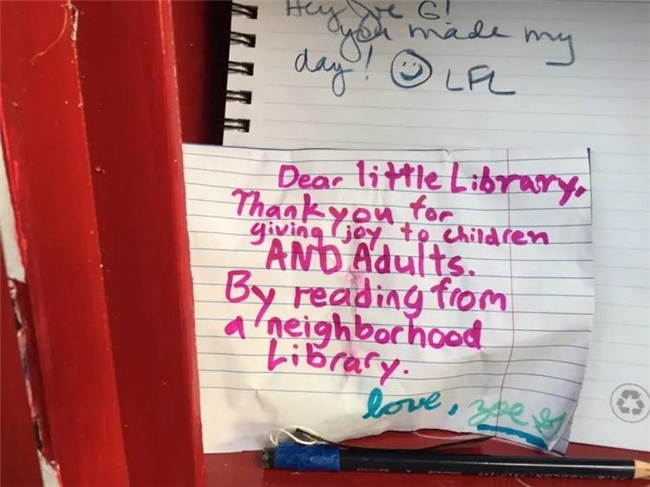 Hey Joe G!
you made my
day! LFL
Dear little Library,
Thank you for
giving joy to children
AND Adults.
By reading from
a neighborhood
Library.
love, zoe